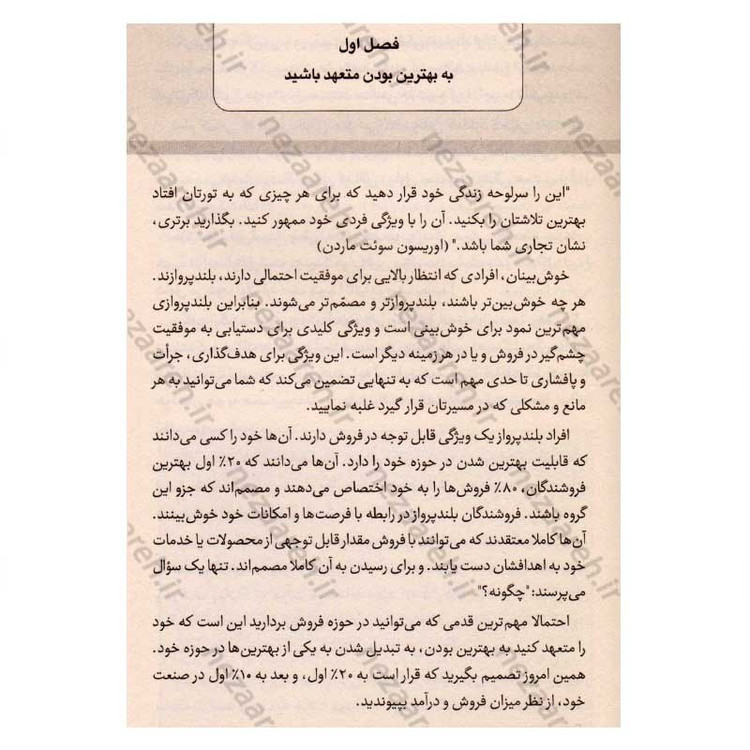 فصل اول
به بهترین بودن متعهد باشید
"این را سرلوحه زندگی خود قرار دهید که برای هر چیزی که به تورتان افتاد
بهترین تلاشتان را بکنید. آن را با ویژگی فردی خود ممهور کنید. بگذارید برتری،
نشان تجاری شما باشد." (اوریسون سوئت ماردن)
خوش‌بینان، افرادی که انتظار بالایی برای موفقیت احتمالی دارند، بلندپروازند.
هر چه خوش‌بین‌تر باشند، بلندپروازتر و مصمّم‌تر می‌شوند. بنابراین بلندپروازی
مهم‌ترین نمود برای خوش‌بینی است و ویژگی کلیدی برای دستیابی به موفقیت
چشم‌گیر در فروش و یا در هر زمینه دیگر است. این ویژگی برای هدف‌گذاری، جرأت
و پافشاری تا حدی مهم است که به تنهایی تضمین می‌کند که شما می‌توانید به هر
مانع و مشکلی که در مسیرتان قرار گیرد غلبه نمایید.
افراد بلندپرواز یک ویژگی قابل توجه در فروش دارند. آن‌ها خود را کسی می‌دانند
که قابلیت بهترین شدن در حوزه خود را دارد. آن‌ها می‌دانند که ۲۰٪ اول بهترین
فروشندگان، ۸۰٪ فروش‌ها را به خود اختصاص می‌دهند و مصمم‌اند که جزو این
گروه باشند. فروشندگان بلندپرواز در رابطه با فرصت‌ها و امکانات خود خوش‌بینند.
آن‌ها کاملا معتقدند که می‌توانند با فروش مقدار قابل توجهی از محصولات یا خدمات
خود به اهدافشان دست یابند. و برای رسیدن به آن کاملا مصمم‌اند. تنها یک سؤال
می‌پرسند: "چگونه؟"
احتمالا مهم‌ترین قدمی که می‌توانید در حوزه فروش بردارید این است که خود
را متعهد کنید به بهترین بودن، به تبدیل شدن به یکی از بهترین‌ها در حوزه خود.
همین امروز تصمیم بگیرید که قرار است به ۲۰٪ اول، و بعد به ۱۰٪ اول در صنعت
خود، از نظر میزان فروش و درآمد بپیوندید.
nezaareh.ir